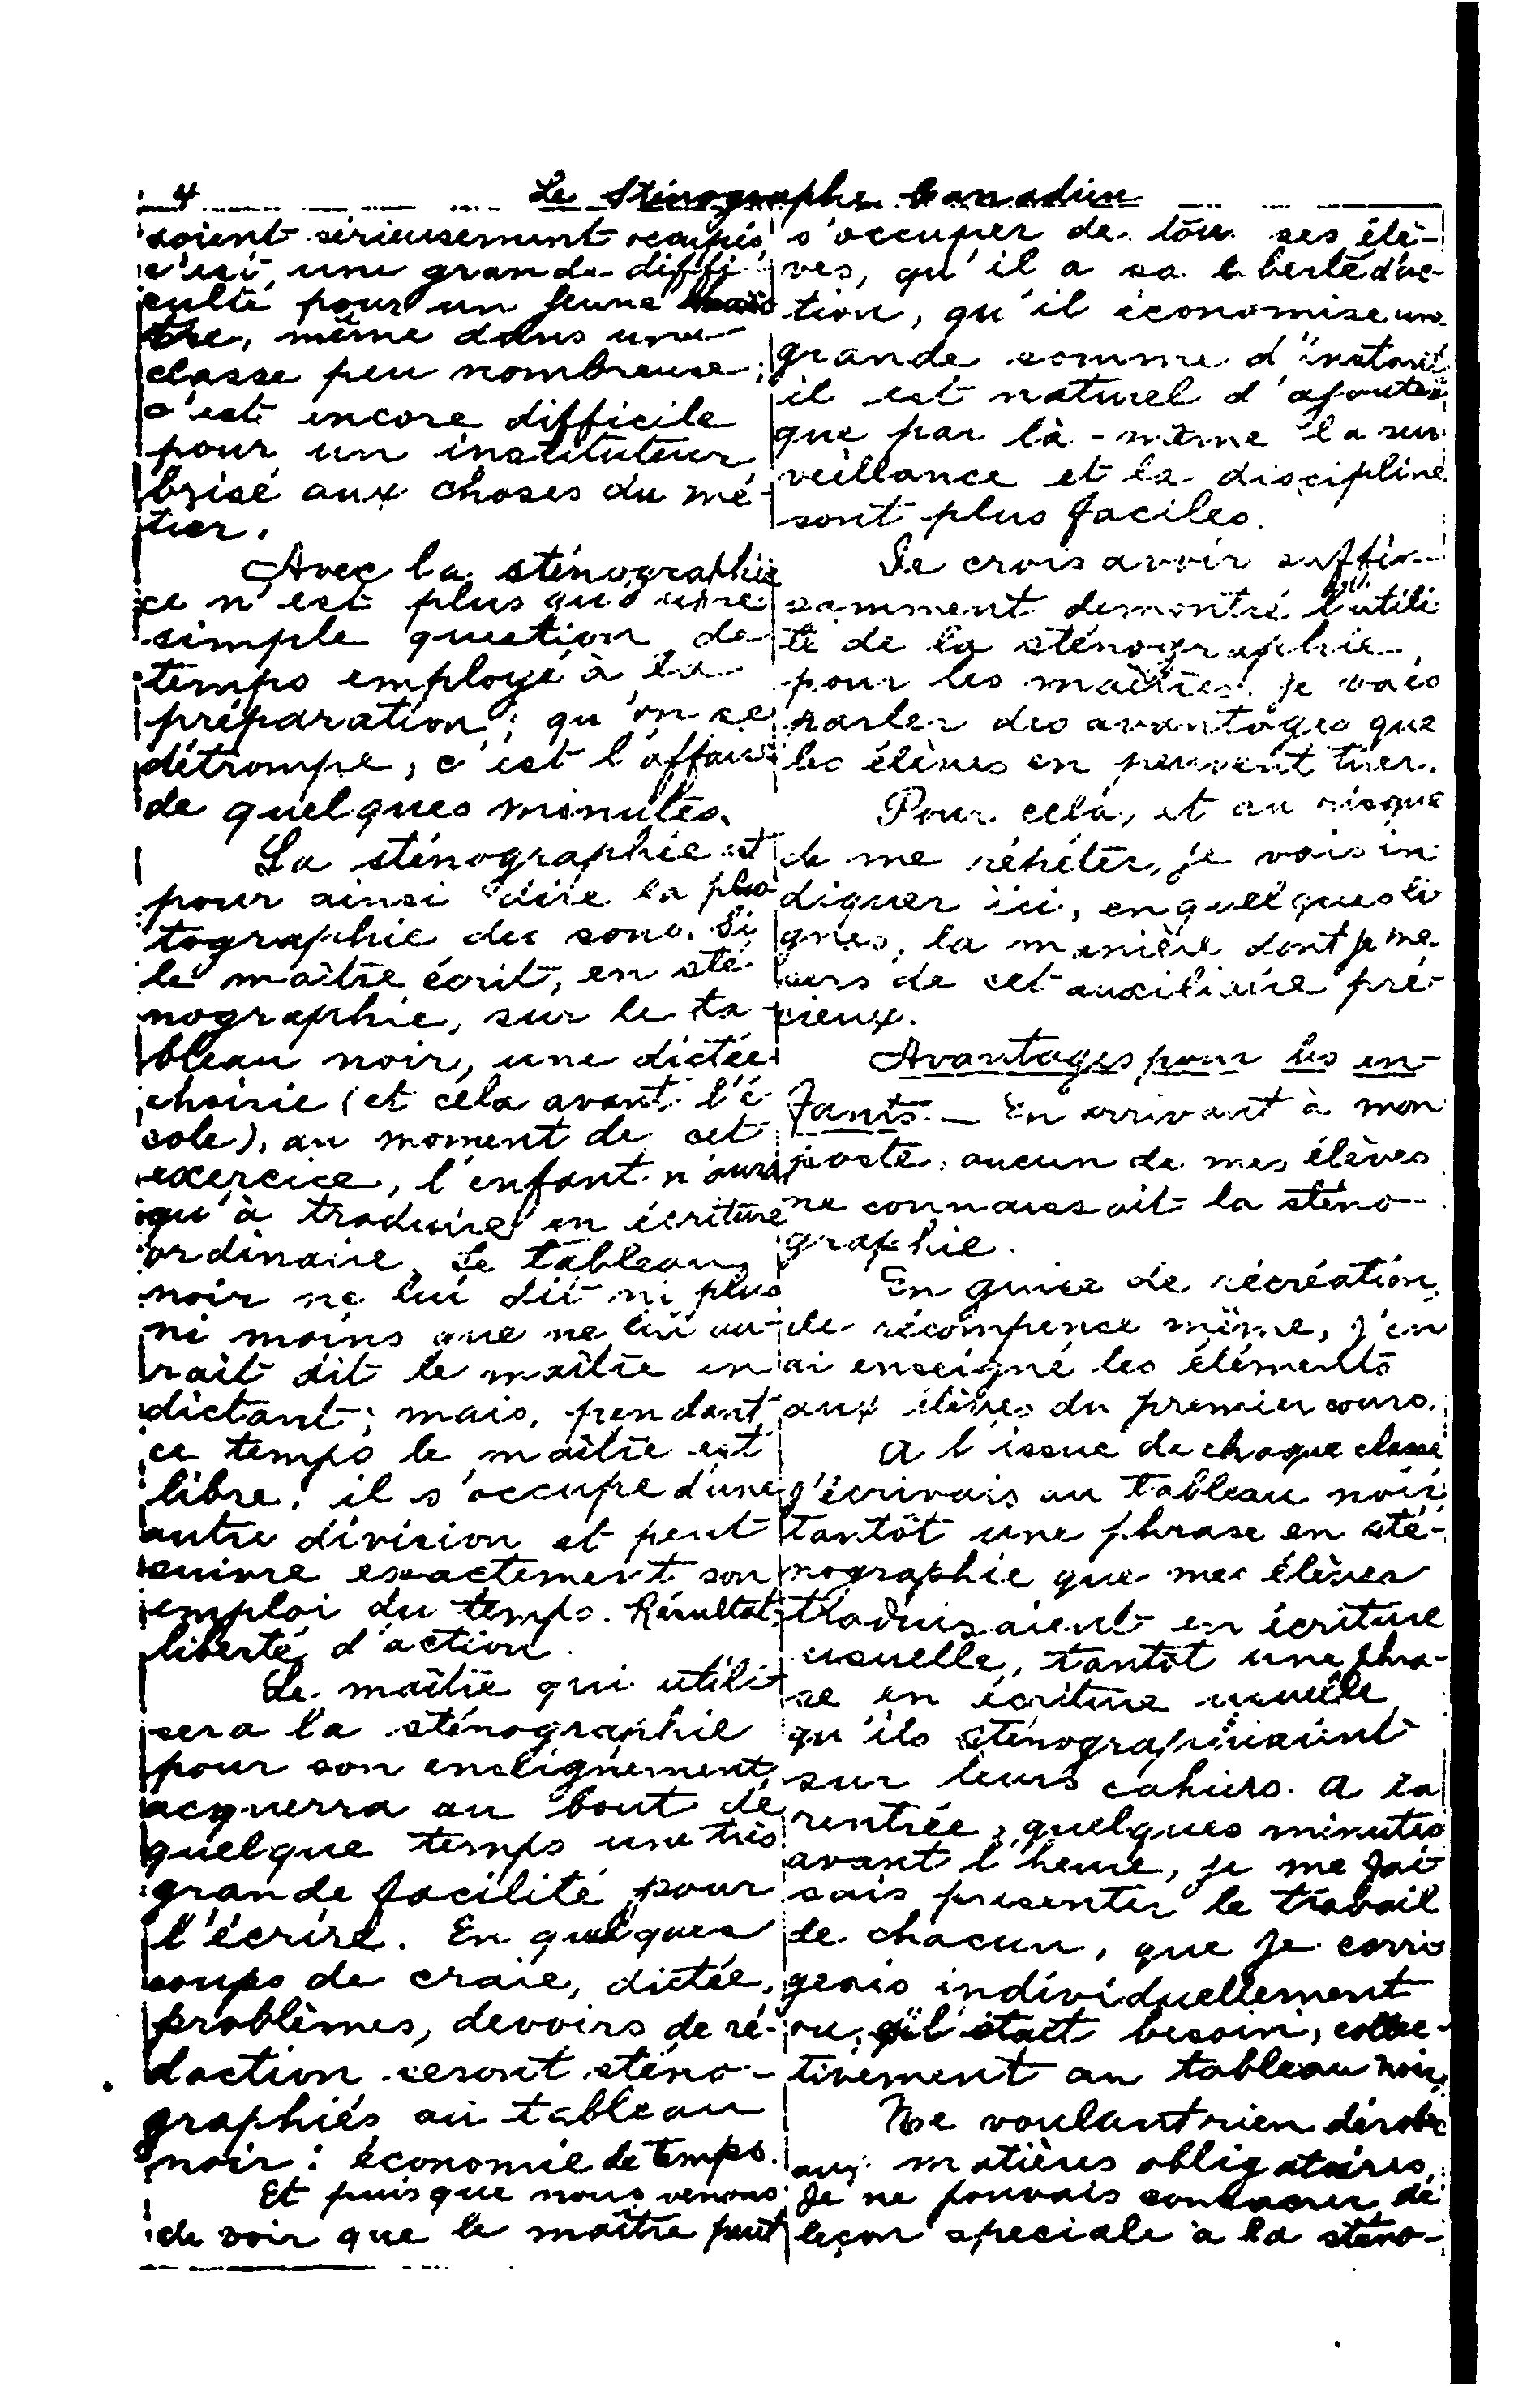 4
Le Sténographe Canadien
soient sérieusement occupés,
c'est une grande diffi-
culté pour un jeune maî-
tre, même dans une
classe peu nombreuse;
c'est encore difficile
pour un instituteur
brisé aux choses du mé-
tier.
Avec la sténographie
ce n'est plus qu'une
simple question de
temps employé à la
préparation; qu'on se
détrompe, c'est l'affaire
de quelques minutes.
La sténographie est
pour ainsi dire la pho-
tographie du sons. Si
le maître écrit, en sté-
nographie, sur le ta-
bleau noir, une dictée
choisie (et cela avant l'é-
cole), au moment de cet
exercice, l'enfant n'aura
qu'à traduire en écriture
ordinaire. Le tableau
noir ne lui dit ni plus
ni moins que ne lui au-
rait dit le maître en
dictant; mais, pendant
ce temps le maître est
libre; il s'occupe d'une
autre division et peut
suivre exactement son
emploi du temps. Résultat:
liberté d'action.
Le maître qui utili-
sera la sténographie
pour son enseignement,
acquerra au bout de
quelque temps une très
grande facilité pour
l'écrire. En quelques
coups de craie, dictée,
problèmes, devoirs de ré-
daction seront sténo-
graphiés au tableau
noir: économie de temps.
Et puisque nous venons
de voir que le maître peut
s'occuper de tous ses élè-
ves, qu'il a sa liberté d'ac-
tion, qu'il économise une
grande somme d'instants
il est naturel d'ajouter
que par là-même la sur
veillance et la discipline
sont plus faciles.
Je crois avoir suffi-
samment demontré l'utili
té de la sténographie
pour les maîtres, je vais
parler des avantages que
les élèves en peuvent tirer.
Pour cela, et au risque
de me répéter, je vais in
diquer ici, en quelques li
gnes, la manière dont je me
sers de cet auxiliaire pré-
cieux.
Avantages pour les en-
fants. — En arrivant à mon
poste, aucun de mes élèves
ne connaissait la sténo-
graphie.
En guise de récréation,
de récompense même, j'en
ai enseigné les éléments
aux élèves du premier cours.
A l'issue de chaque classe
j'écrivais au tableau noir
tantôt une phrase en sté-
nographie que mes élèves
traduisaient en écriture
usuelle, tantôt une phra-
se en écriture usuelle
qu'ils sténographiaient
sur leurs cahiers. A la
rentrée, quelques minutes
avant l'heure, je me fai
sais presenter le travail
de chacun, que je corri
geais individuellement
ou, s'il était besoin, collec-
tivement au tableau noir.
Ne voulant rien dérober
aux matières obligatoires,
je ne pouvais consacrer de
leçon speciale à la sténo-